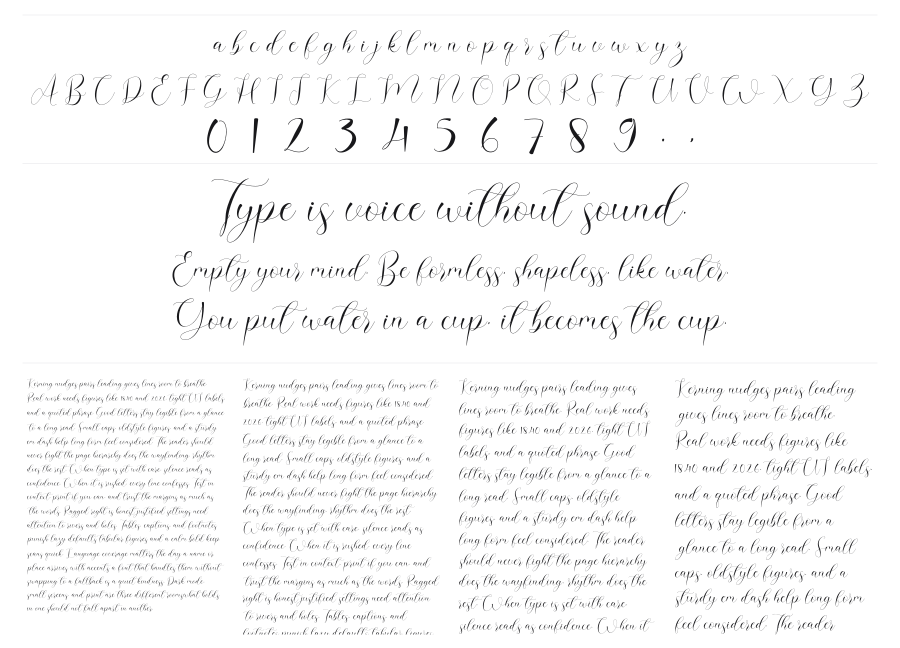 a b c d e f g h i j k l m n o p q r s t u v w x y z
A B C D E F G H I J K L M N O P Q R S T U V W X Y Z
0 1 2 3 4 5 6 7 8 9 . ,
Type is voice without sound.
Empty your mind. Be formless, shapeless, like water.
You put water in a cup, it becomes the cup.
Kerning nudges pairs leading gives lines room to breathe
Real work needs figures like 18.40 and 2026 tight CTA labels
and a quoted phrase Good letters stay legible from a glance
to a long read. Small caps, oldstyle figures, and a sturdy
em dash help long form feel considered. The readers should
never fight the page hierarchy does the wayfinding rhythm
does the rest. When type is set with care, silence reads as
confidence. When it is rushed, every line confesses. Test in
context, print if you can, and trust the margins as much as
the words. Ragged right is honest, justified settings need
attention to rivers and holes. Tables, captions, and footnotes
punish lazy defaults, tabular figures and a calm bold keep
scans quick. Language coverage matters, the day a name or
place arrives with accents, a font that handles them without
swapping to a fallback is a quiet kindness. Dark mode
small screens, and print are three different rooms, what holds
in one should not fall apart in another.
Kerning nudges pairs leading gives lines room to
breathe Real work needs figures like 18.40 and
2026 tight CTA labels and a quoted phrase
Good letters stay legible from a glance to a
long read. Small caps, oldstyle figures, and a
sturdy em dash help long form feel considered.
The readers should never fight the page hierarchy
does the wayfinding rhythm does the rest.
When type is set with care, silence reads as
confidence. When it is rushed, every line
confesses. Test in context, print if you can, and
trust the margins as much as the words. Ragged
right is honest, justified settings need attention
to rivers and holes. Tables, captions, and
footnotes punish lazy defaults, tabular figures
Kerning nudges pairs leading gives
lines room to breathe Real work needs
figures like 18.40 and 2026 tight CTA
labels and a quoted phrase Good
letters stay legible from a glance to a
long read. Small caps, oldstyle
figures, and a sturdy em dash help
long form feel considered. The readers
should never fight the page hierarchy
does the wayfinding rhythm does the
rest. When type is set with care,
silence reads as confidence. When it
Kerning nudges pairs leading
gives lines room to breathe
Real work needs figures like
18.40 and 2026 tight CTA labels
and a quoted phrase Good
letters stay legible from a
glance to a long read. Small
caps, oldstyle figures, and a
sturdy em dash help long form
feel considered. The readers